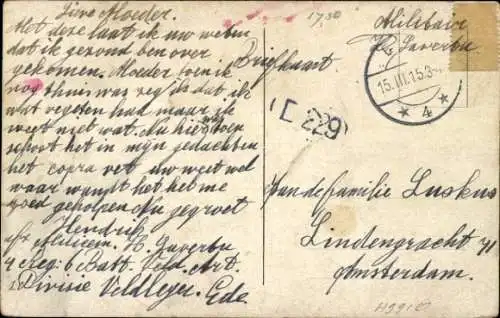 Lieve Moeder.
Met deze laat ik uw weten
dat ik gezond ben over
gekomen. Moeder toen ik
nog thuis was zeg ik dat ik
wat vegeten had maar ik
weet niet wat. Nu hier
schoot het in mijn gedachten
het copra vet uw weet wel
waar want het het me
goed geholpen Nu gegroet
Hendrik
Milicien. H. Gaverbu
4 Reg: 6 Batt. Veld. Art.
Divisie Veldleger. Ede.
17,50
Militair
H. Gaverbu
Briefkaart
15.III.15.3-
* 4 *
(L 229)
Aan de familie Luskus
Lindengracht 41
Amsterdam.